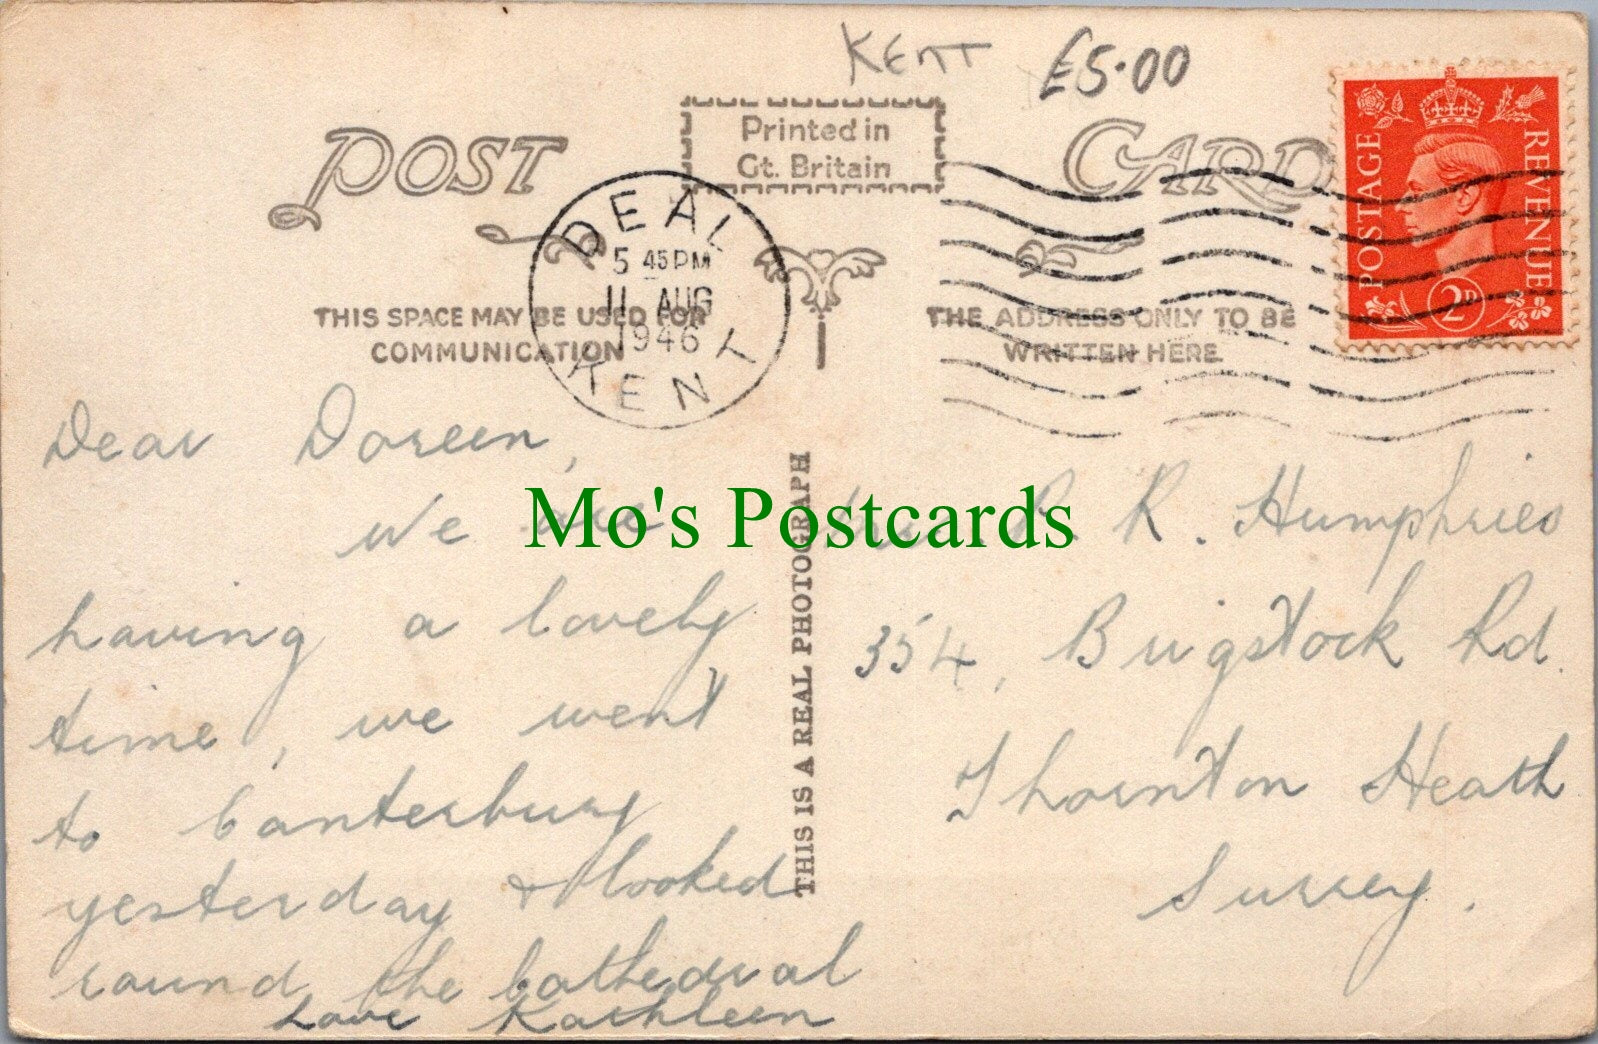 KENT £5.00
POST CARD
Printed in
Gt. Britain
POSTAGE REVENUE
2D
DEAL
5 45 PM
11 AUG
1946
KENT
THIS SPACE MAY BE USED FOR
COMMUNICATION
THE ADDRESS ONLY TO BE
WRITTEN HERE.
Dear Doreen,
We are
having a lovely
time, we went
to Canterbury
yesterday & looked
round the Cathedral
Love Kathleen
THIS IS A REAL PHOTOGRAPH
R. Humphries
354, Brigstock Rd.
Thornton Heath
Surrey.
Mo's Postcards